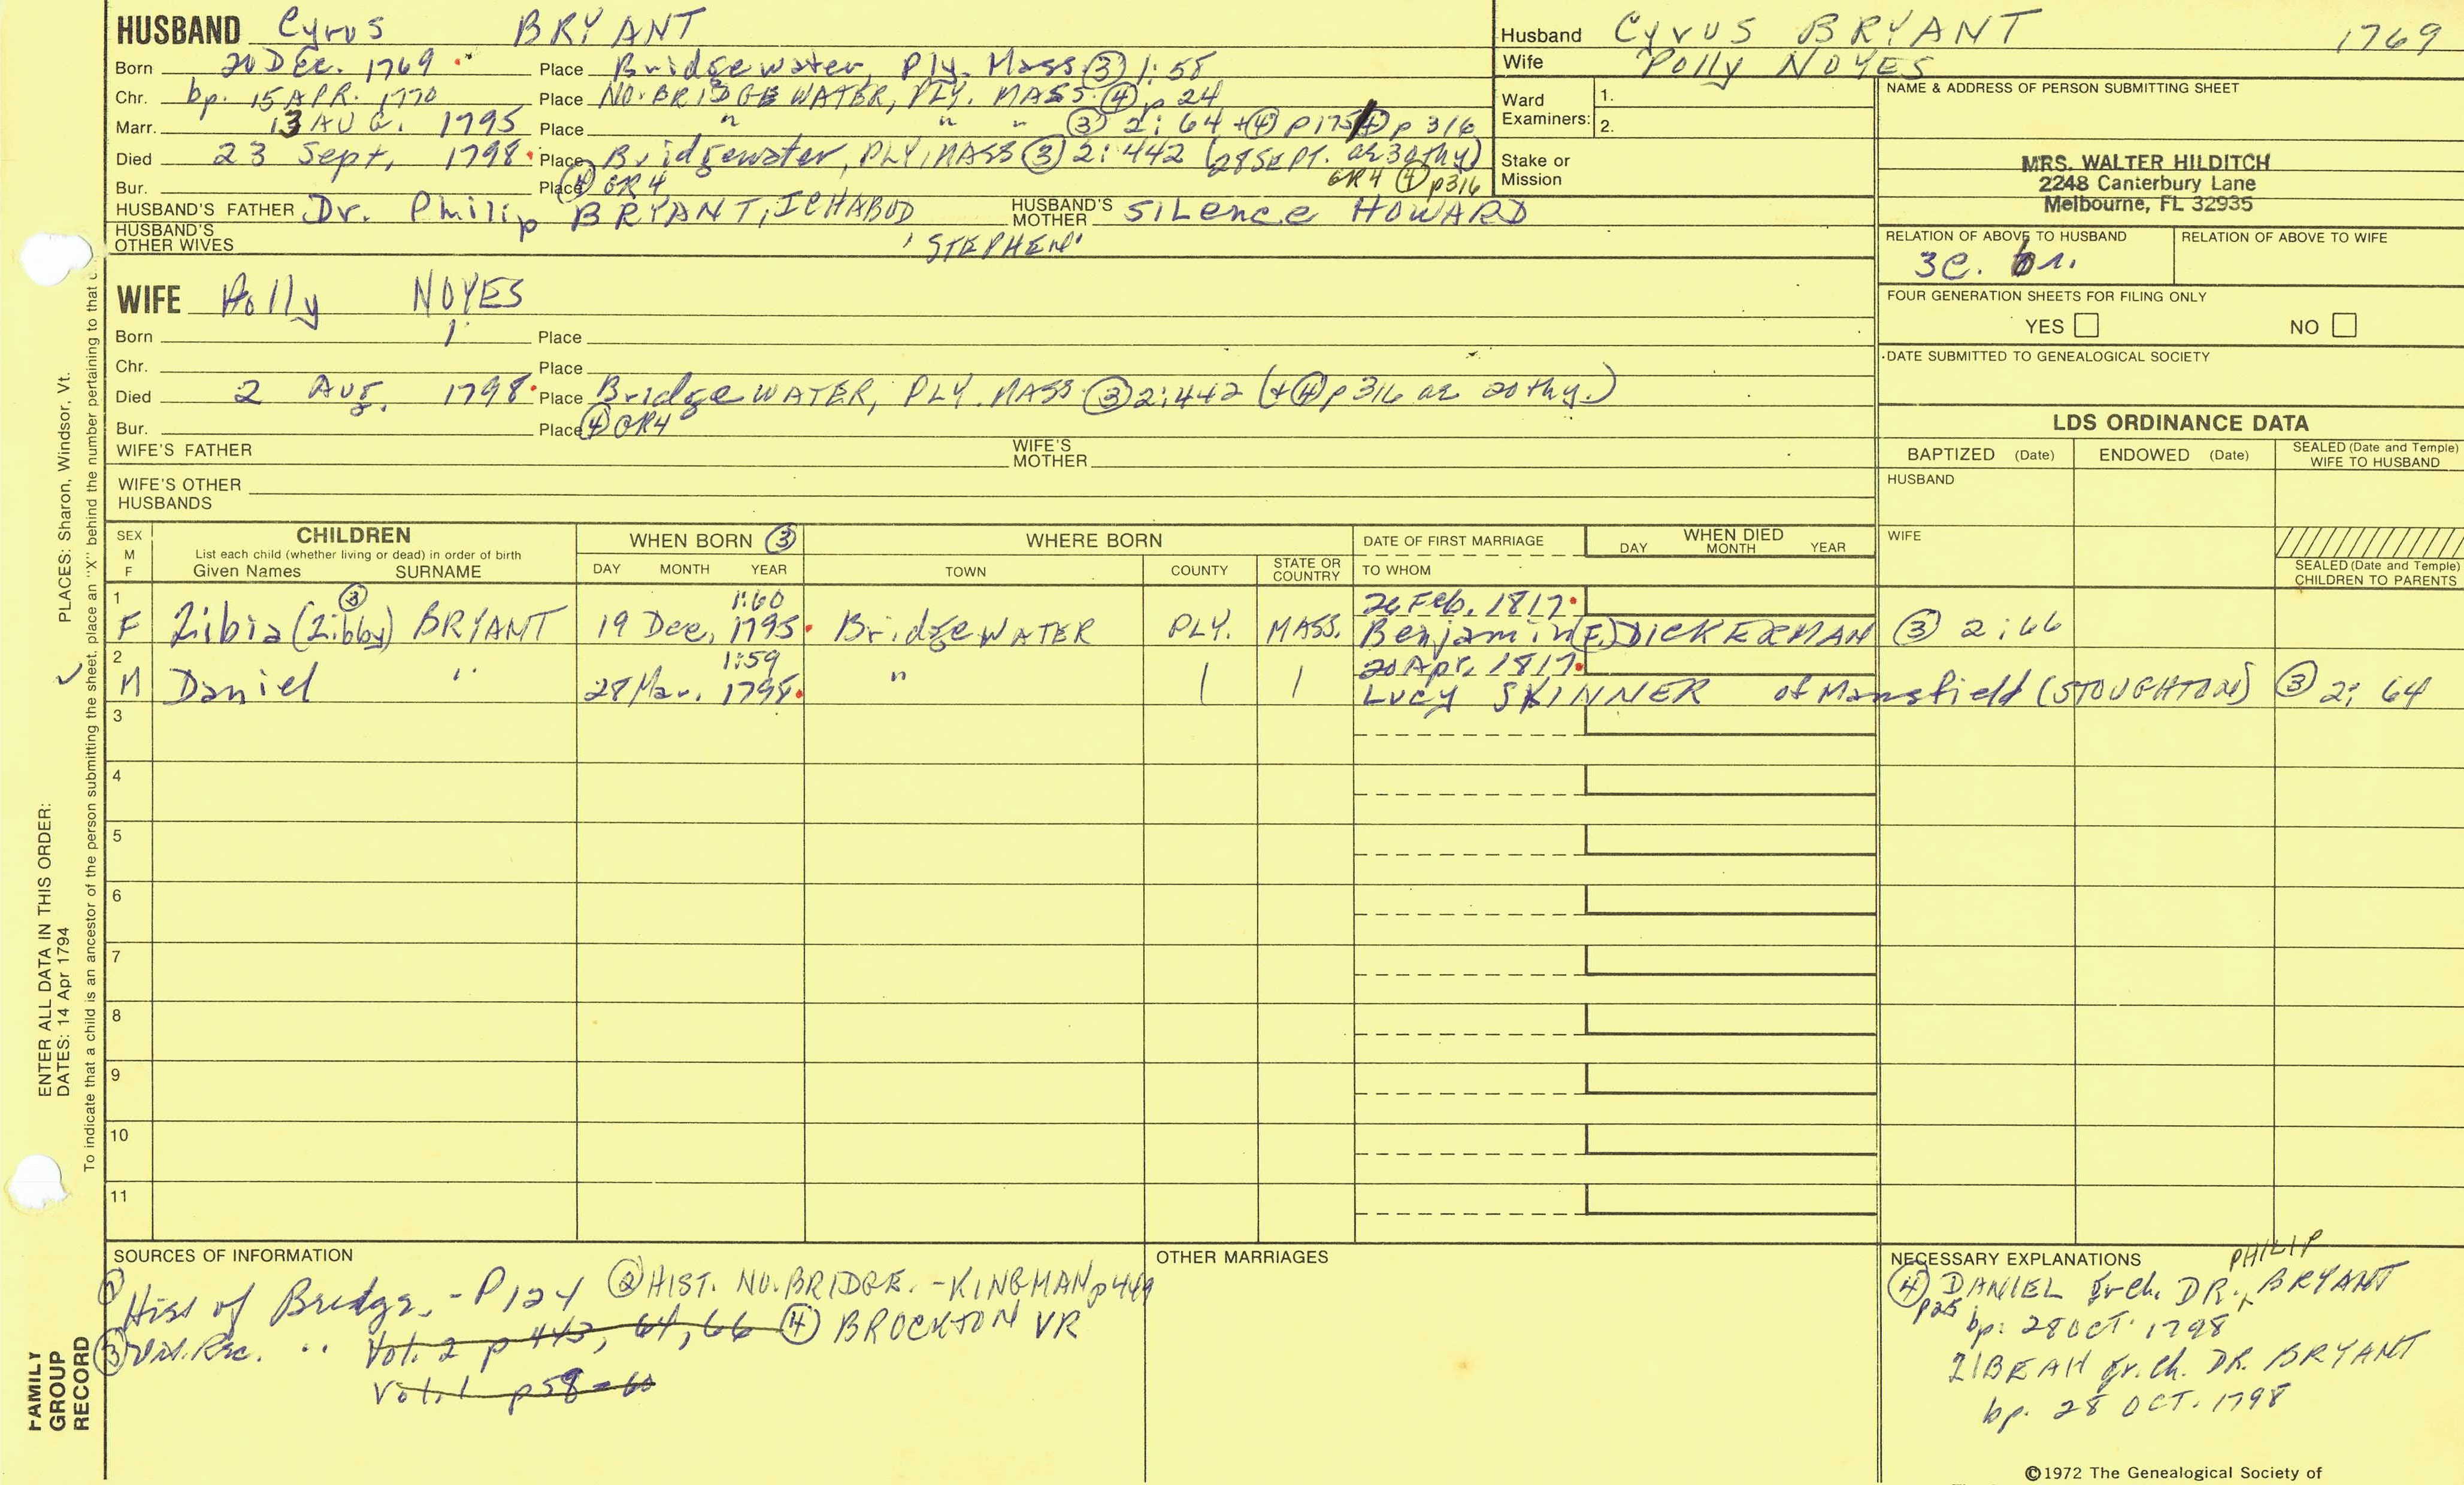 HUSBAND Cyrus BRYANT
Born 20 Dec. 1769 Place Bridgewater, Ply. Mass ③ 1:58
Chr. bp. 15 APR. 1770 Place NO. BRIDGEWATER, PLY. MASS. ④ p 24
Marr. 13 AUG. 1795 Place " " " ③ 2:64 + ④ p175 ④ p 316
Died 23 Sept, 1798 Place Bridgewater, PLY, MASS ③ 2:442 (28 SEPT. ae 30thy)
Bur. Place ④ GR4 GR4 ④ p316
HUSBAND'S FATHER Dr. Philip BRYANT, ICHABOD HUSBAND'S MOTHER SILENCE HOWARD
HUSBAND'S OTHER WIVES 'STEPHEN'
Husband Cyrus BRYANT 1769
Wife Polly NOYES
Ward Examiners: 1.
2.
Stake or Mission
NAME & ADDRESS OF PERSON SUBMITTING SHEET
MRS. WALTER HILDITCH
2248 Canterbury Lane
Melbourne, FL 32935
RELATION OF ABOVE TO HUSBAND RELATION OF ABOVE TO WIFE
3C.
FOUR GENERATION SHEETS FOR FILING ONLY
YES NO
DATE SUBMITTED TO GENEALOGICAL SOCIETY
WIFE Polly NOYES
Born Place
Chr. Place
Died 2 Aug. 1798 Place BridgeWATER, PLY. MASS ③ 2:442 (+④ p 316 ae 20thy.)
Bur. Place ④ GR4
WIFE'S FATHER WIFE'S MOTHER
WIFE'S OTHER HUSBANDS
LDS ORDINANCE DATA
BAPTIZED (Date) ENDOWED (Date) SEALED (Date and Temple) WIFE TO HUSBAND
HUSBAND
WIFE
SEALED (Date and Temple) CHILDREN TO PARENTS
SEX M F
CHILDREN
List each child (whether living or dead) in order of birth
Given Names SURNAME
WHEN BORN ③
DAY MONTH YEAR
WHERE BORN
TOWN COUNTY STATE OR COUNTRY
DATE OF FIRST MARRIAGE
TO WHOM
WHEN DIED
DAY MONTH YEAR
1 ③ 1:60 26 Feb. 1817
F Zibia (Zibby) BRYANT 19 Dec. 1795 BridgeWATER PLY. MASS. Benjamin (F.) DICKERMAN ③ 2:66
2 1:59 20 Apr. 1817
M Daniel " 28 Mar. 1798 " Lucy SKINNER of Mansfield (STOUGHTON) ③ 2:64
3
4
5
6
7
8
9
10
11
SOURCES OF INFORMATION
① Hist of Bridge. - P124 ② HIST. NO. BRIDGE. - KINGMAN p449
③ Vit. Rec. " Vol. 2 p 442, 64, 66 ④ BROCKTON VR
Vol. 1 p58-60
OTHER MARRIAGES
NECESSARY EXPLANATIONS
PHILIP
④ DANIEL gr.ch. DR. ^ BRYANT
p25 bp. 28 OCT. 1798
ZIBEAH gr.ch. DR. BRYANT
bp. 28 OCT. 1798
©1972 The Genealogical Society of
ENTER ALL DATA IN THIS ORDER:
DATES: 14 Apr 1794 PLACES: Sharon, Windsor, Vt.
To indicate that a child is an ancestor of the person submitting the sheet, place an "X" behind the number pertaining to that c
FAMILY GROUP RECORD